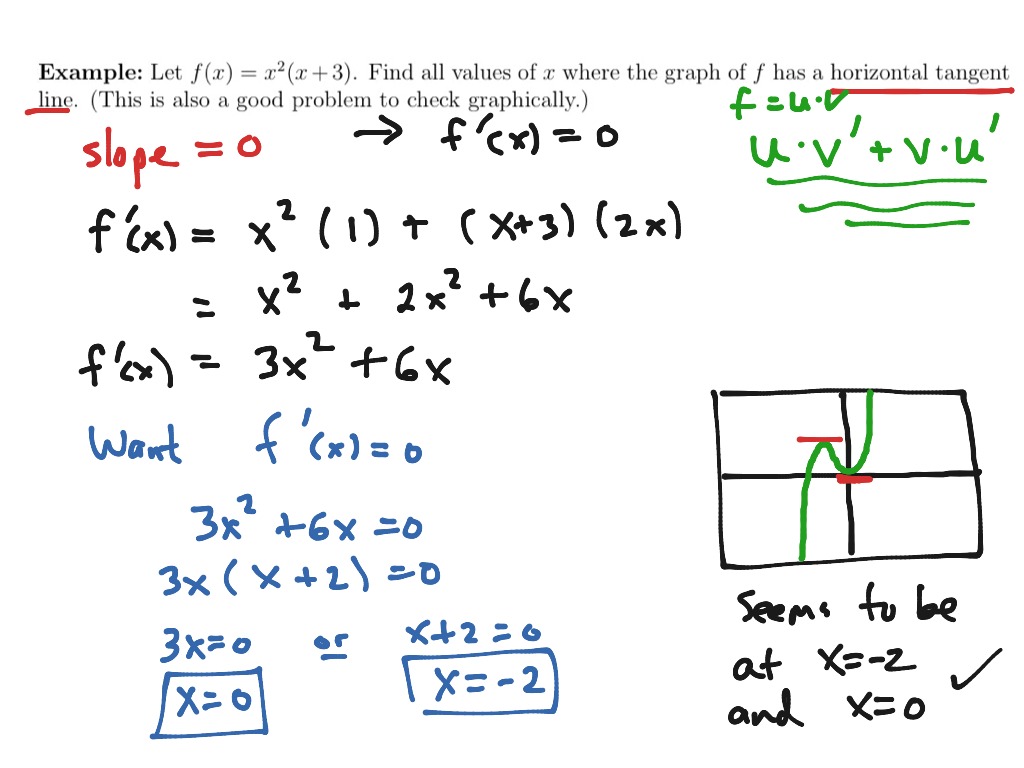 Example: Let f(x) = x²(x + 3). Find all values of x where the graph of f has a horizontal tangent
line. (This is also a good problem to check graphically.)
f = u·v
slope = 0 → f'(x) = 0
u·v' + v·u'
f'(x) = x² (1) + (x+3) (2x)
= x² + 2x² + 6x
f'(x) = 3x² + 6x
Want f'(x) = 0
3x² + 6x = 0
3x (x + 2) = 0
3x = 0 or x + 2 = 0
x = 0 x = -2
Seems to be
at x = -2
and x = 0 ✓